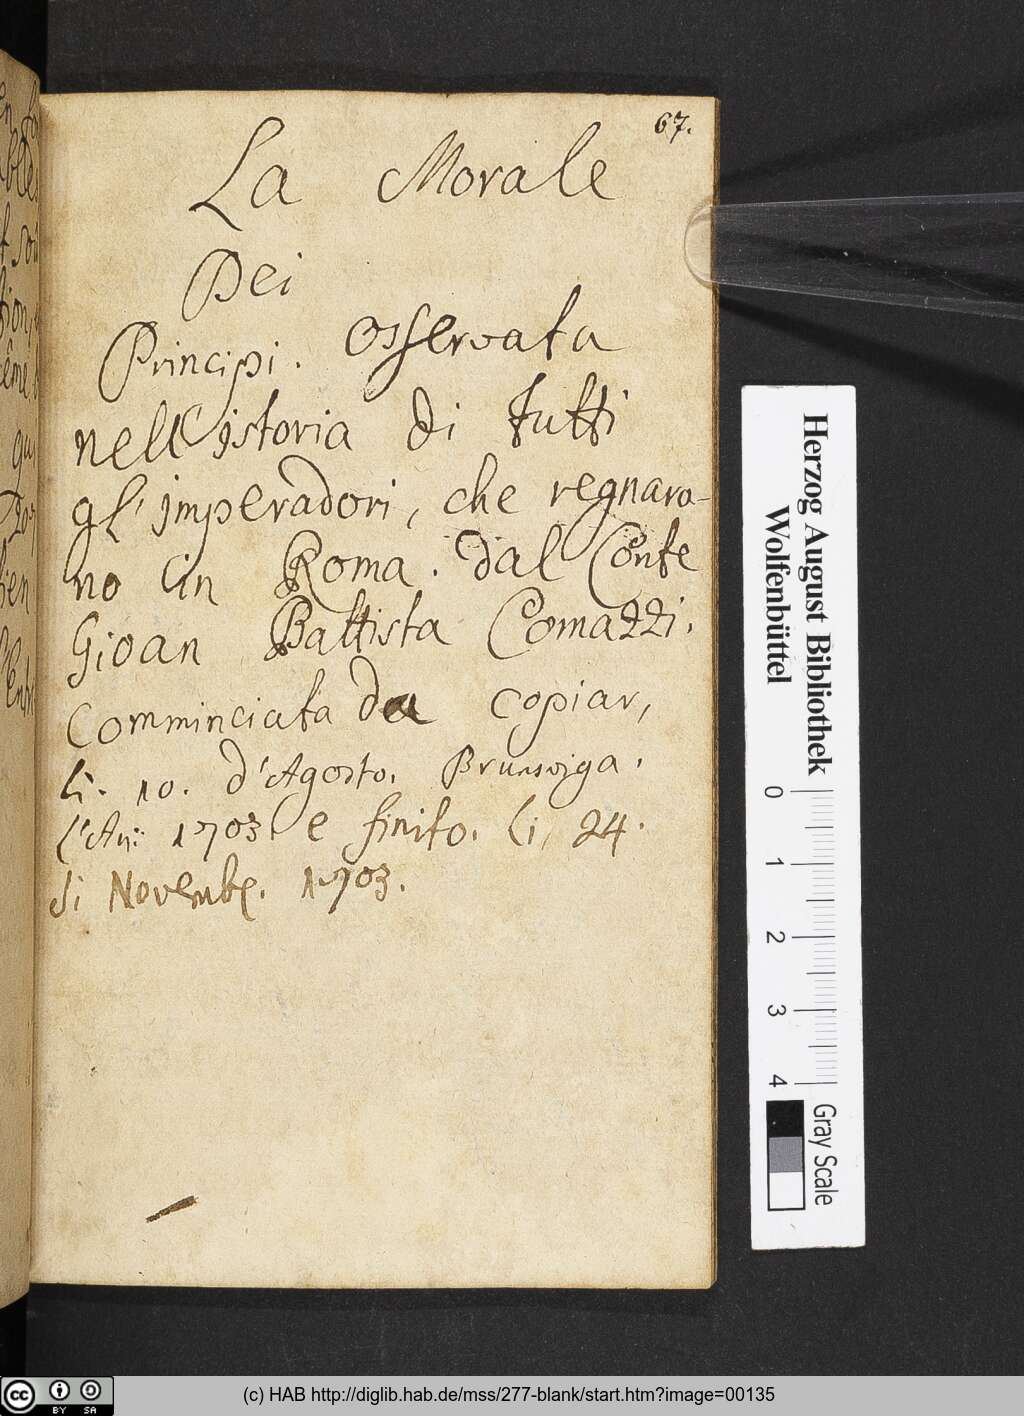 67.
La Morale
Dei
Principi. Osservata
nell' istoria di tutti
gl' imperadori, che regnaro-
no in Roma. dal Conte
Gioan Battista Comazzi.
Comminciata da copiar,
li. 10. d'Agosto. Brunsviga.
l'An: 1703. e finito. li, 24.
di Novembr. 1703.
Herzog August Bibliothek
Wolfenbüttel
0 1 2 3 4
Gray Scale
cc BY SA
(c) HAB http://diglib.hab.de/mss/277-blank/start.htm?image=00135